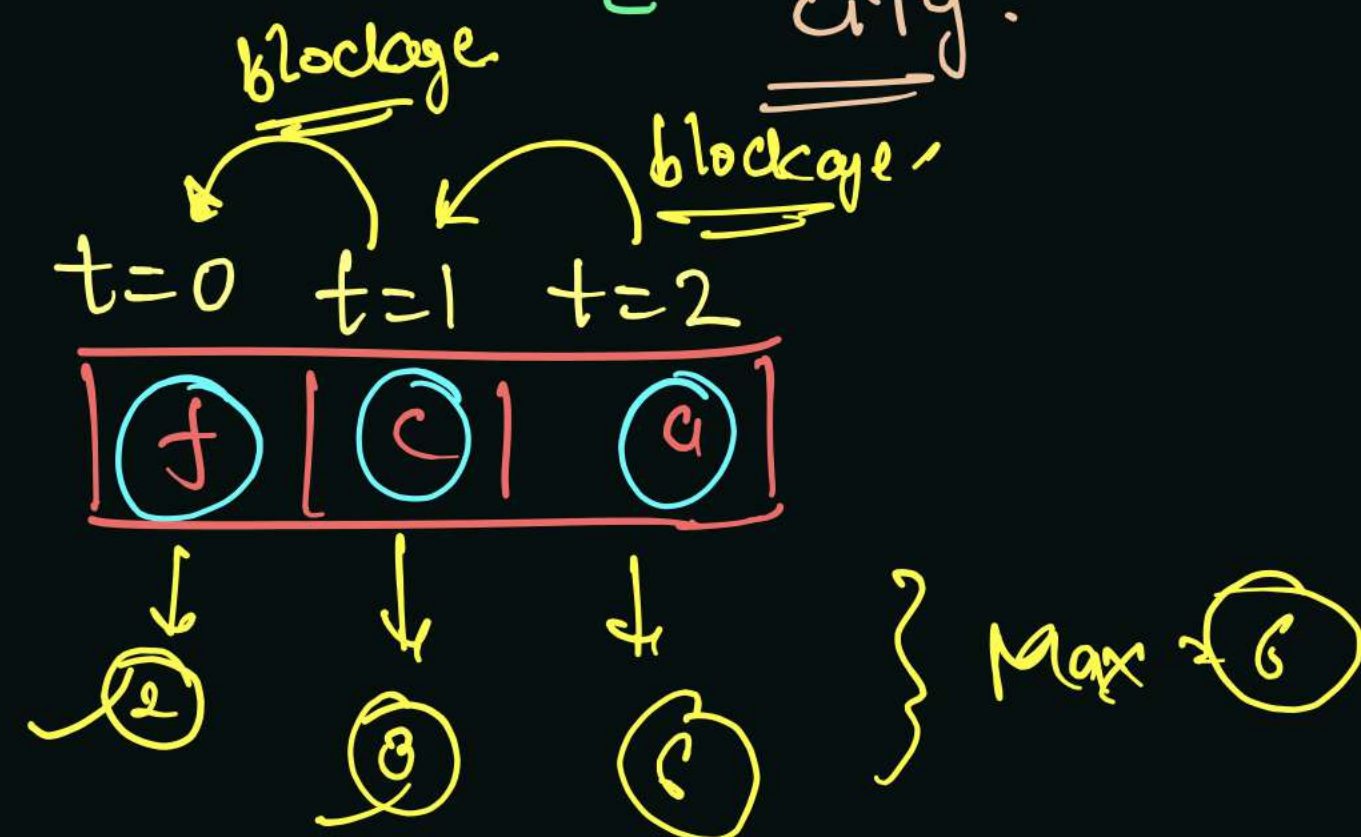 city.
blockage
blockage
t=0 t=1 t=2
f c a
2 3 6
Max = 6